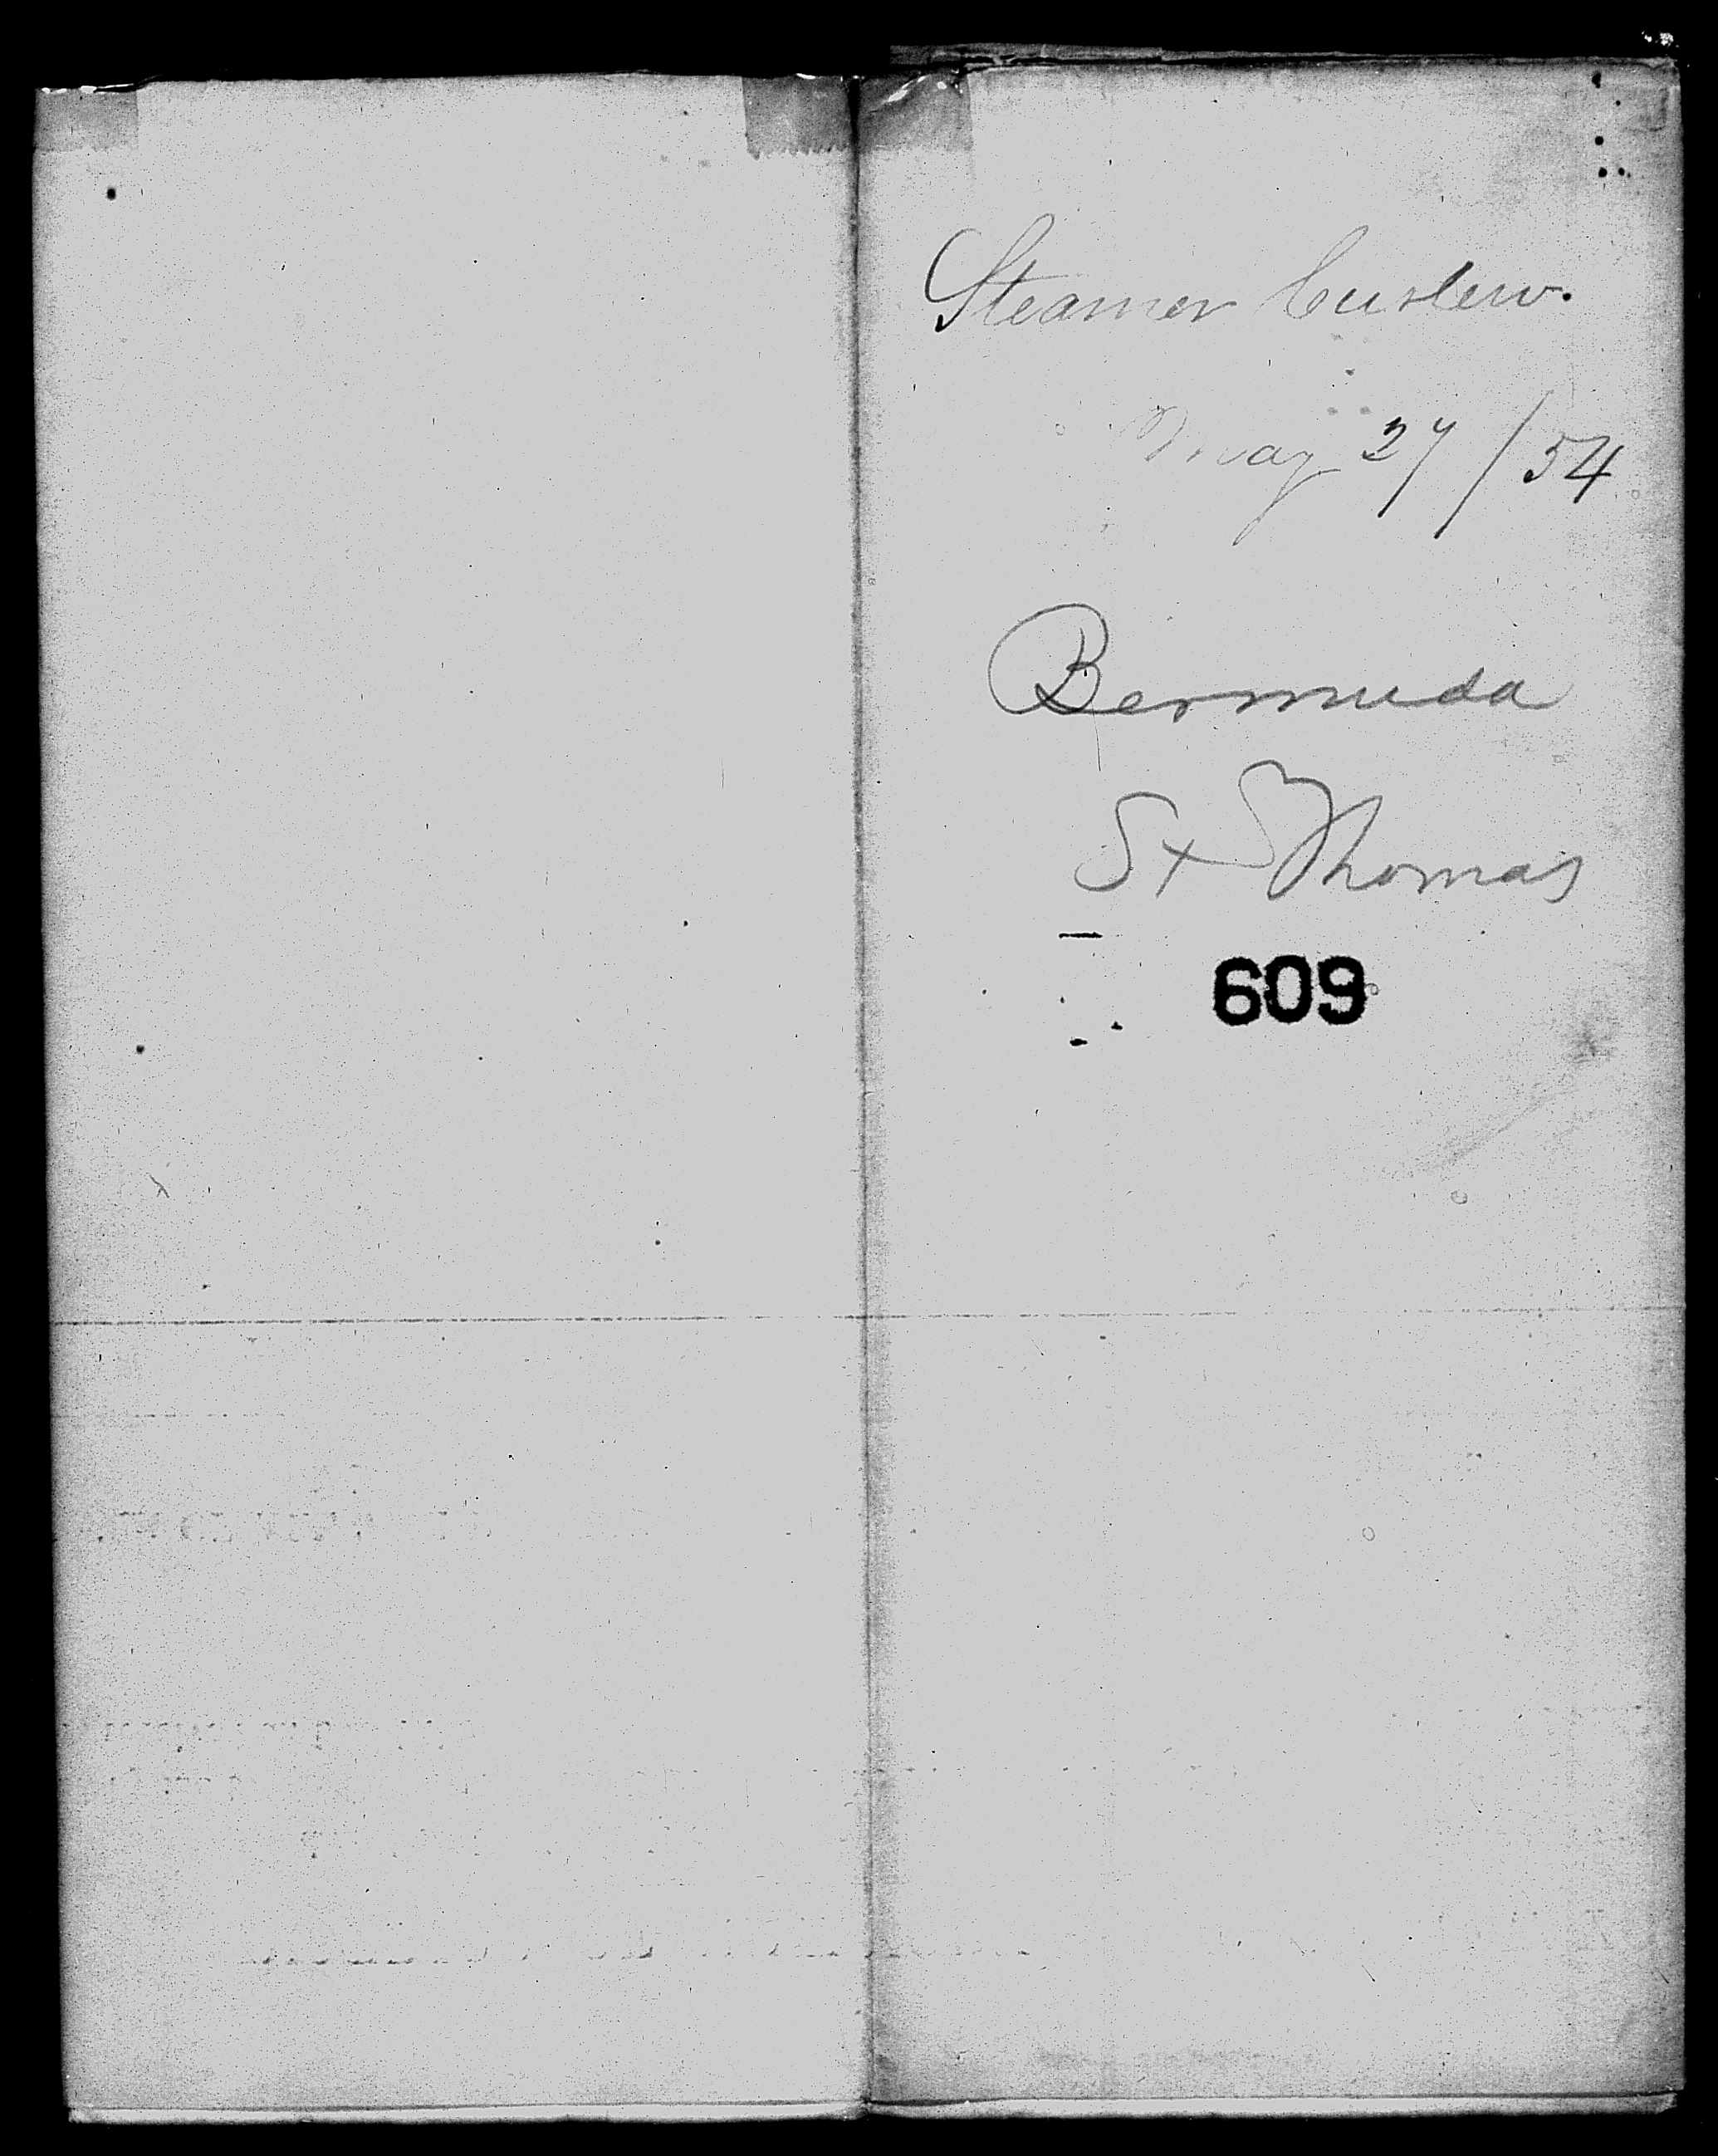 Steamer Curlew.
May 27/54
Bermuda
St Thomas
609